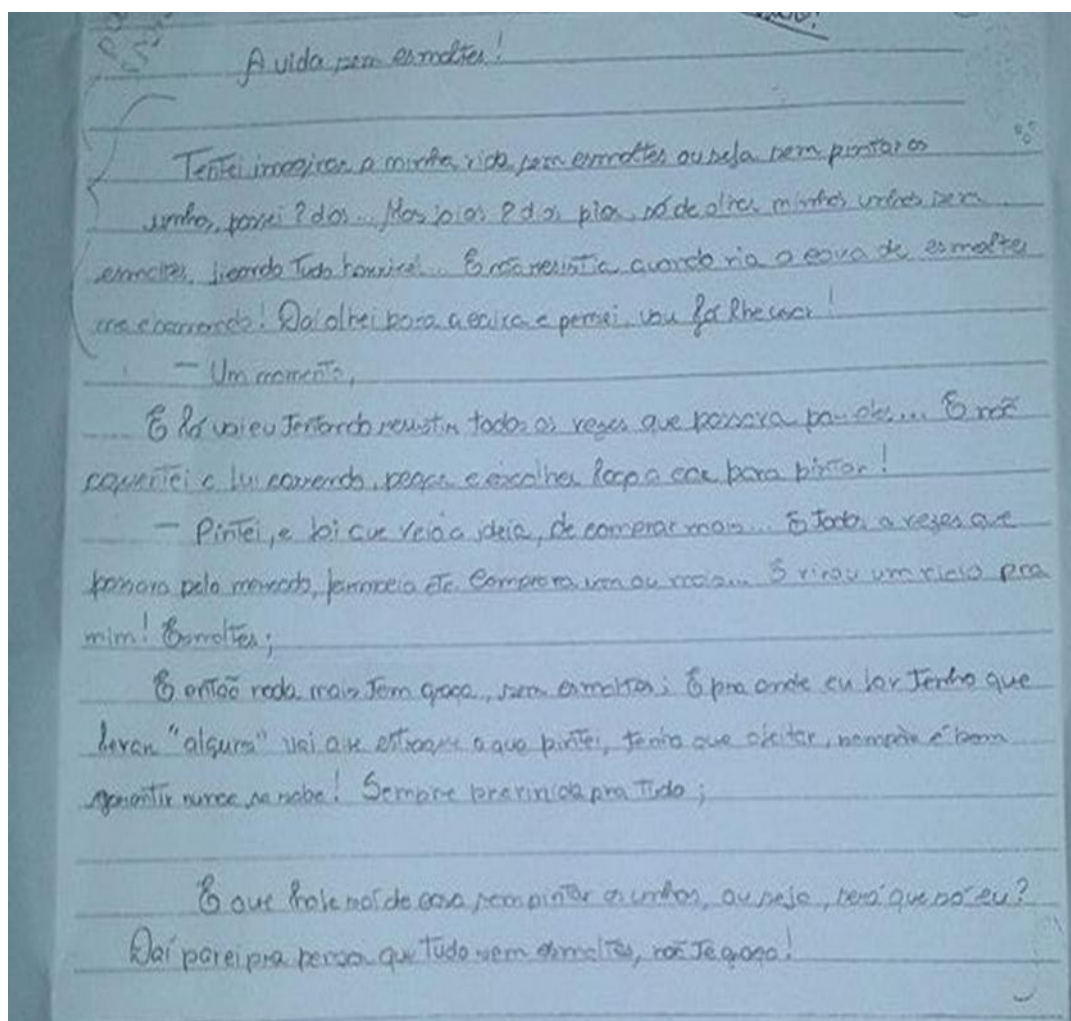 A vida sem esmaltes!
Tentei imaginar a minha vida, sem esmaltes ou seja sem pintar as
unhas, passei 2 dias... Mas só de olhar minhas unhas sem
esmaltes, ficando Tudo horrível... E não resistia quando via a caixa de esmaltes
me chamando! Daí olhei para a caixa e pensei, vou
— Um momento,
E lá vai eu Tentando resistir todas as vezes que passava por eles... E não
aguentei e fui correndo, pegar e escolher logo a cor para pintar!
— Pintei, e foi que veio a ideia, de comprar mais... E Toda a vezes que
passava pelo mercado, farmacia etc. Comprava um ou mais... E virou um vicio pra
mim! Esmaltes;
E então nada mais Tem graça, sem esmaltes; E pra onde eu for Tenho que
levar "alguns" vai que estrague o que pintei, tenho que sempre é bom
garantir nunca se sabe! Sempre previnida pra Tudo;
E que hoje não de casa sem pintar as unhas, ou seja, será que só eu?
Daí parei pra pensar que Tudo sem esmaltes, não Te graça!